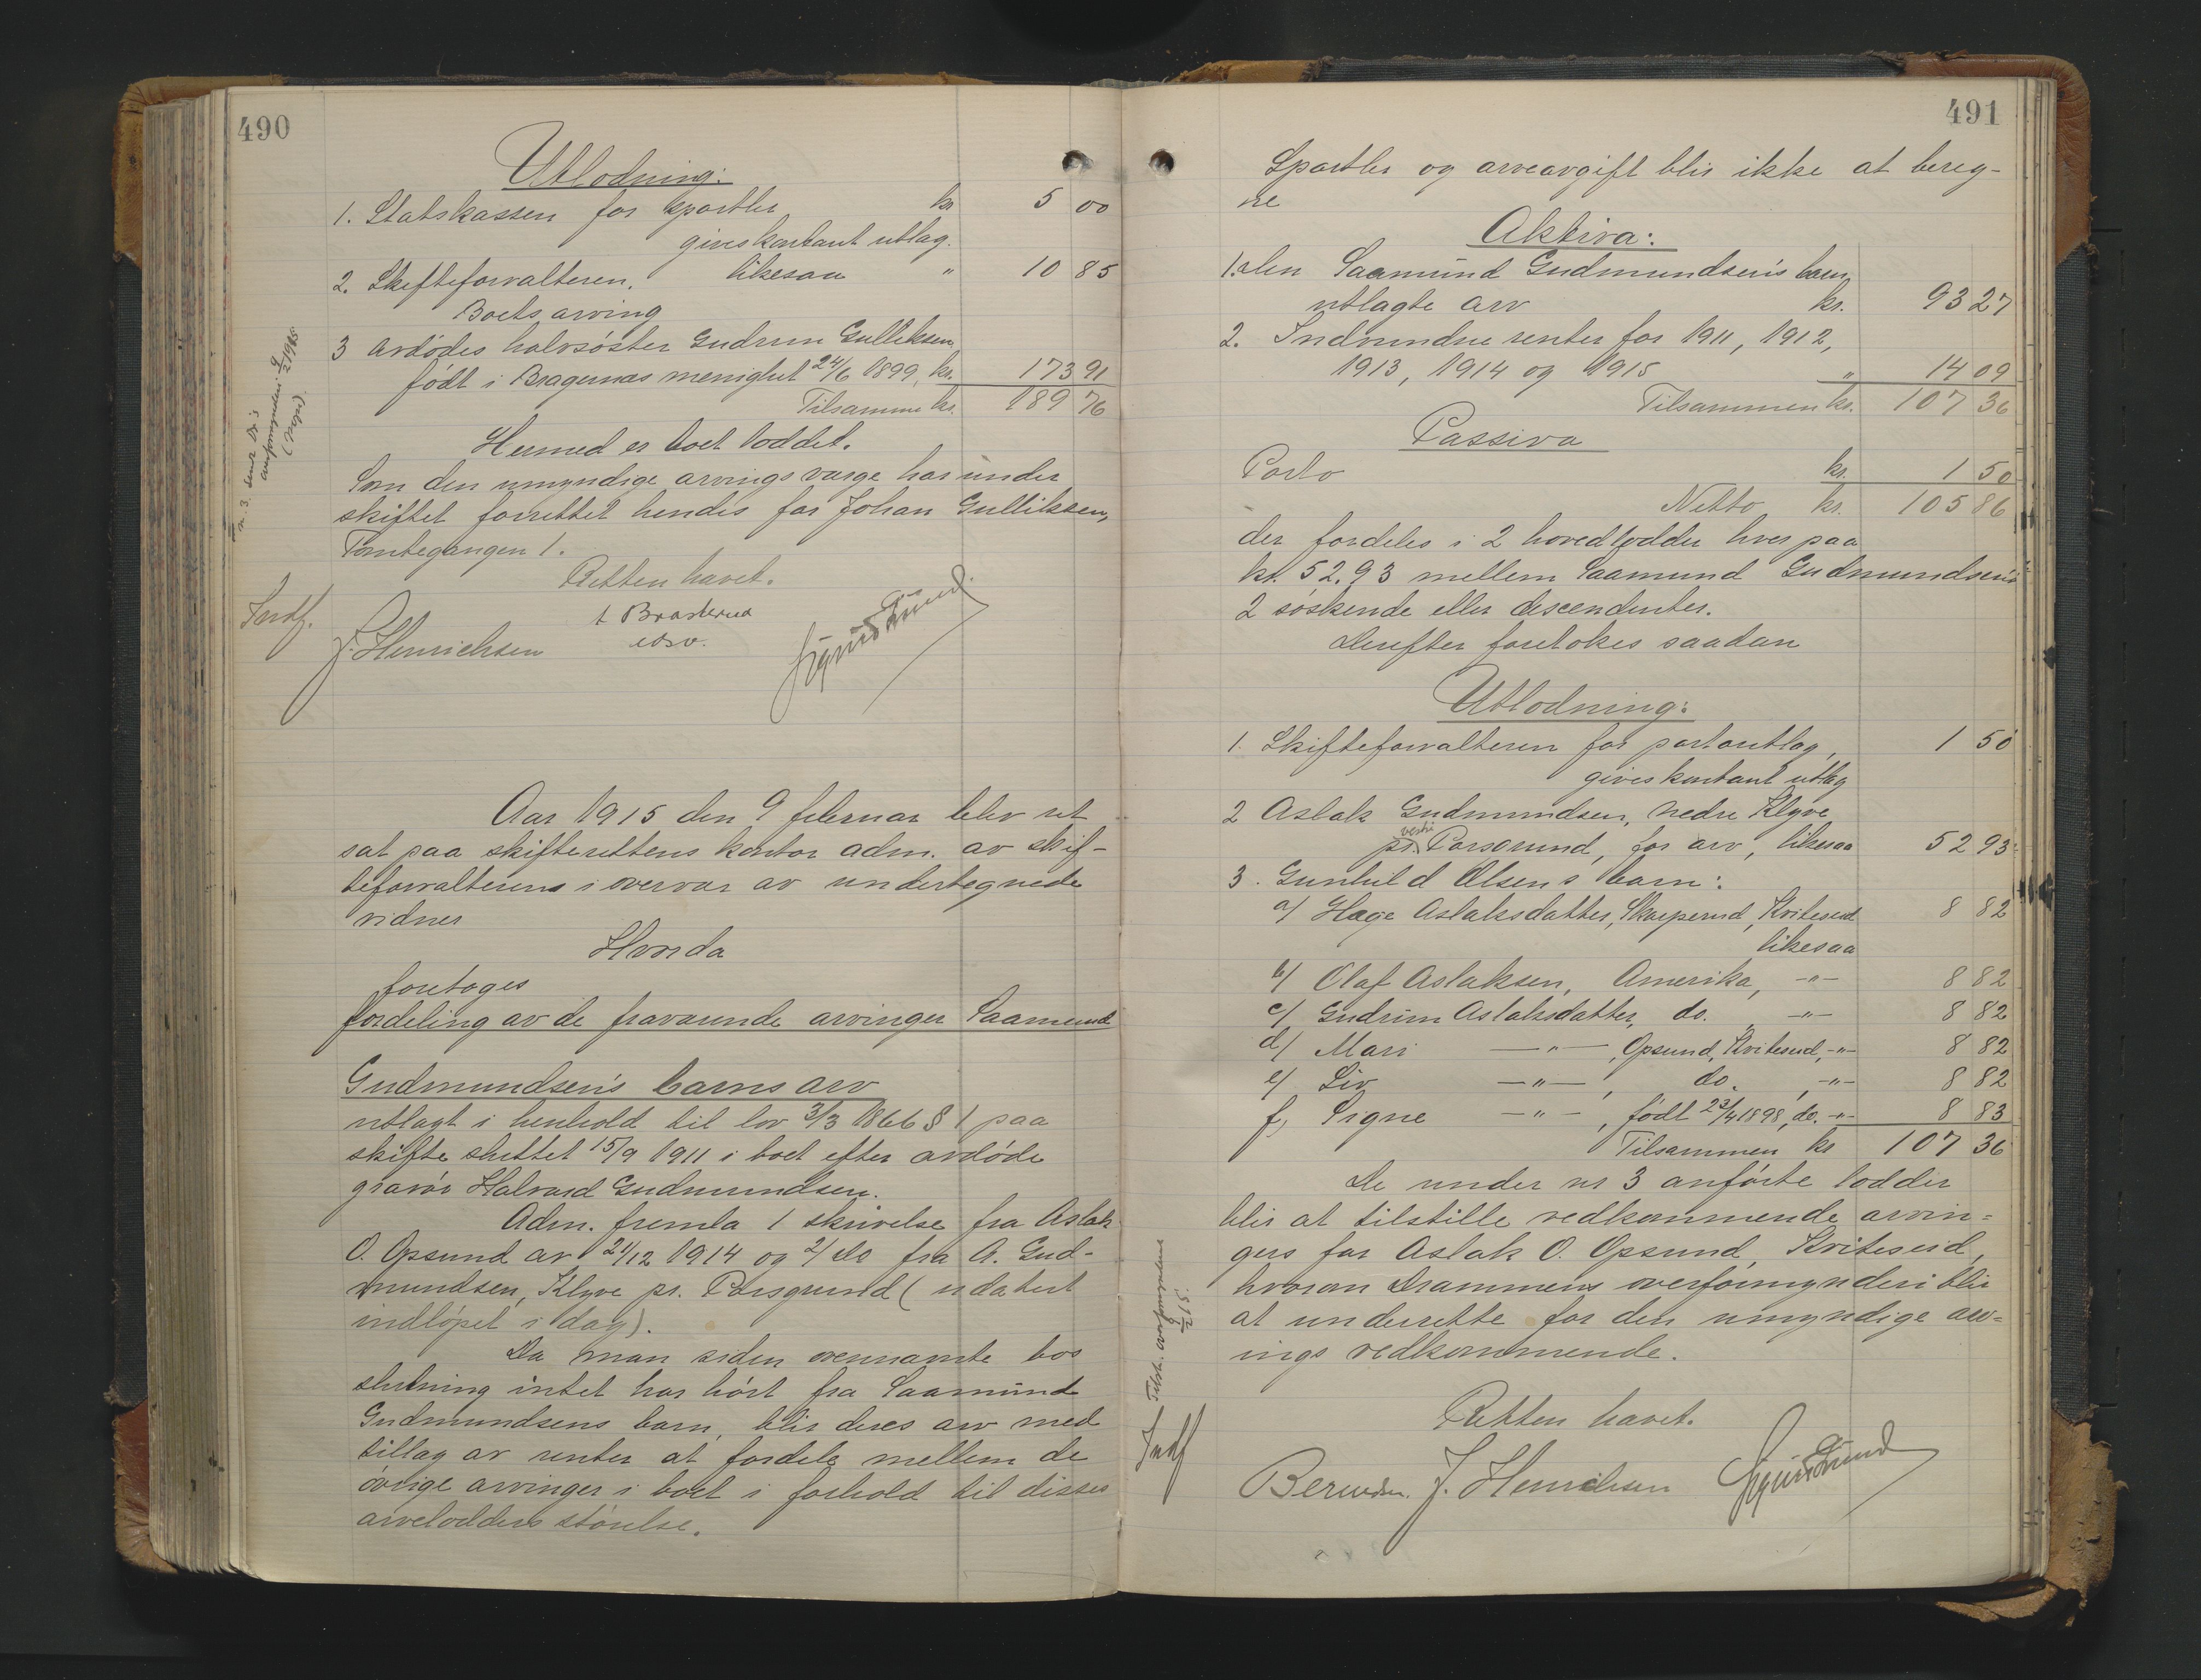 490
Utlodning:
1. Statskassen for sportler kr 5 00
gives kontant utlag.
2. Skifteforvalteren, likesaa " 10 85
Boets arving
3 Avdödes halvsöster Gudrun Gulliksen,
född i Bragernæs menighet 24/6 1899, kr. 173 91
Tilsammen kr. 189 76
Hermed er boet loddet.
Som den umyndige arvings værge har under
skiftet forrettet hendes far Johan Gulliksen,
Tomtegangen 1.
Retten hævet.
J. Henrichsen
Sigurd Lund
Indf.
n. 3. sendt Dr's
overformynderi 9/2 1915.
Aar 1915 den 9 februar blev ret
sat paa skifterettens kontor adm. av skif-
teforvalteren i overvær av undertegnede
vidner
Hvorda
foretoges
fordeling av de fraværende arvinger Saamund
Gudmundsen's barns arv
utlagt i henhold til lov 3/3 1866 § 1 paa
skifte sluttet 15/9 1911 i boet efter avdöde
gravör Halvard Gudmundsen.
Adm. fremla 1 skrivelse fra Aslak
O. Opsund av 21/12 1914 og 2/ do fra A. Gud-
mundsen, Klyve pr. Porsgrund (udatert
indlöpet i dag).
Da man siden ovennævnte bos
slutning intet har hört fra Saamund
Gudmundsens barn, blir deres arv med
tillæg av renter at fordele mellem de
övrige arvinger i boet i forhold til disses
arvelodders störelse.
491
Sportler og arveavgift blir ikke at bereg-
ne
Aktiva:
1. Den Saamund Gudmundsen's barn
utlagte arv kr. 93 27
2. Indvundne renter for 1911, 1912,
1913, 1914 og 1915 " 14 09
Tilsammen kr. 107 36
Passiva
Porto kr. 1 50
Netto kr. 105 86
der fordeles i 2 hovedlodder hver paa
kr. 52.93 mellem Saamund Gudmundsen's
2 söskende eller descendenter.
Derefter foretokes saadan
Utlodning:
1. Skifteforvalteren for portoutlag, 1 50
gives kontant utlæg
2 Aslak Gudmundsen, nedre Klyve
pr. vestre Porsgrund, for arv, likesaa 52 93
3. Gunhild Olsens barn:
a/ Hæge Aslaksdatter, Skarperud, Kviteseid 8 82
likesaa
b/ Olaf Aslaksen, Amerika, -"- 8 82
c/ Gudrun Aslaksdatter, do. -"- 8 82
d/ Mari —"—, Opsund, Kviteseid, -"- 8 82
e/ Liv —"—, do. -"- 8 82
f, Signe —"—, född 23/4 1898, do. -"- 8 83
Tilsammen kr 107 36
De under nr 3 anförte lodder
blir at tilstille vedkommende arvin=
gers far Aslak O. Opsund, Kviteseid,
hvorom Drammens overformynderi blir
at underrette for den umyndige arv=
ings vedkommende.
Retten hævet.
J. Henrichsen
Sigurd Lund
Indf
Tilst. overformynderi
9/2 15.